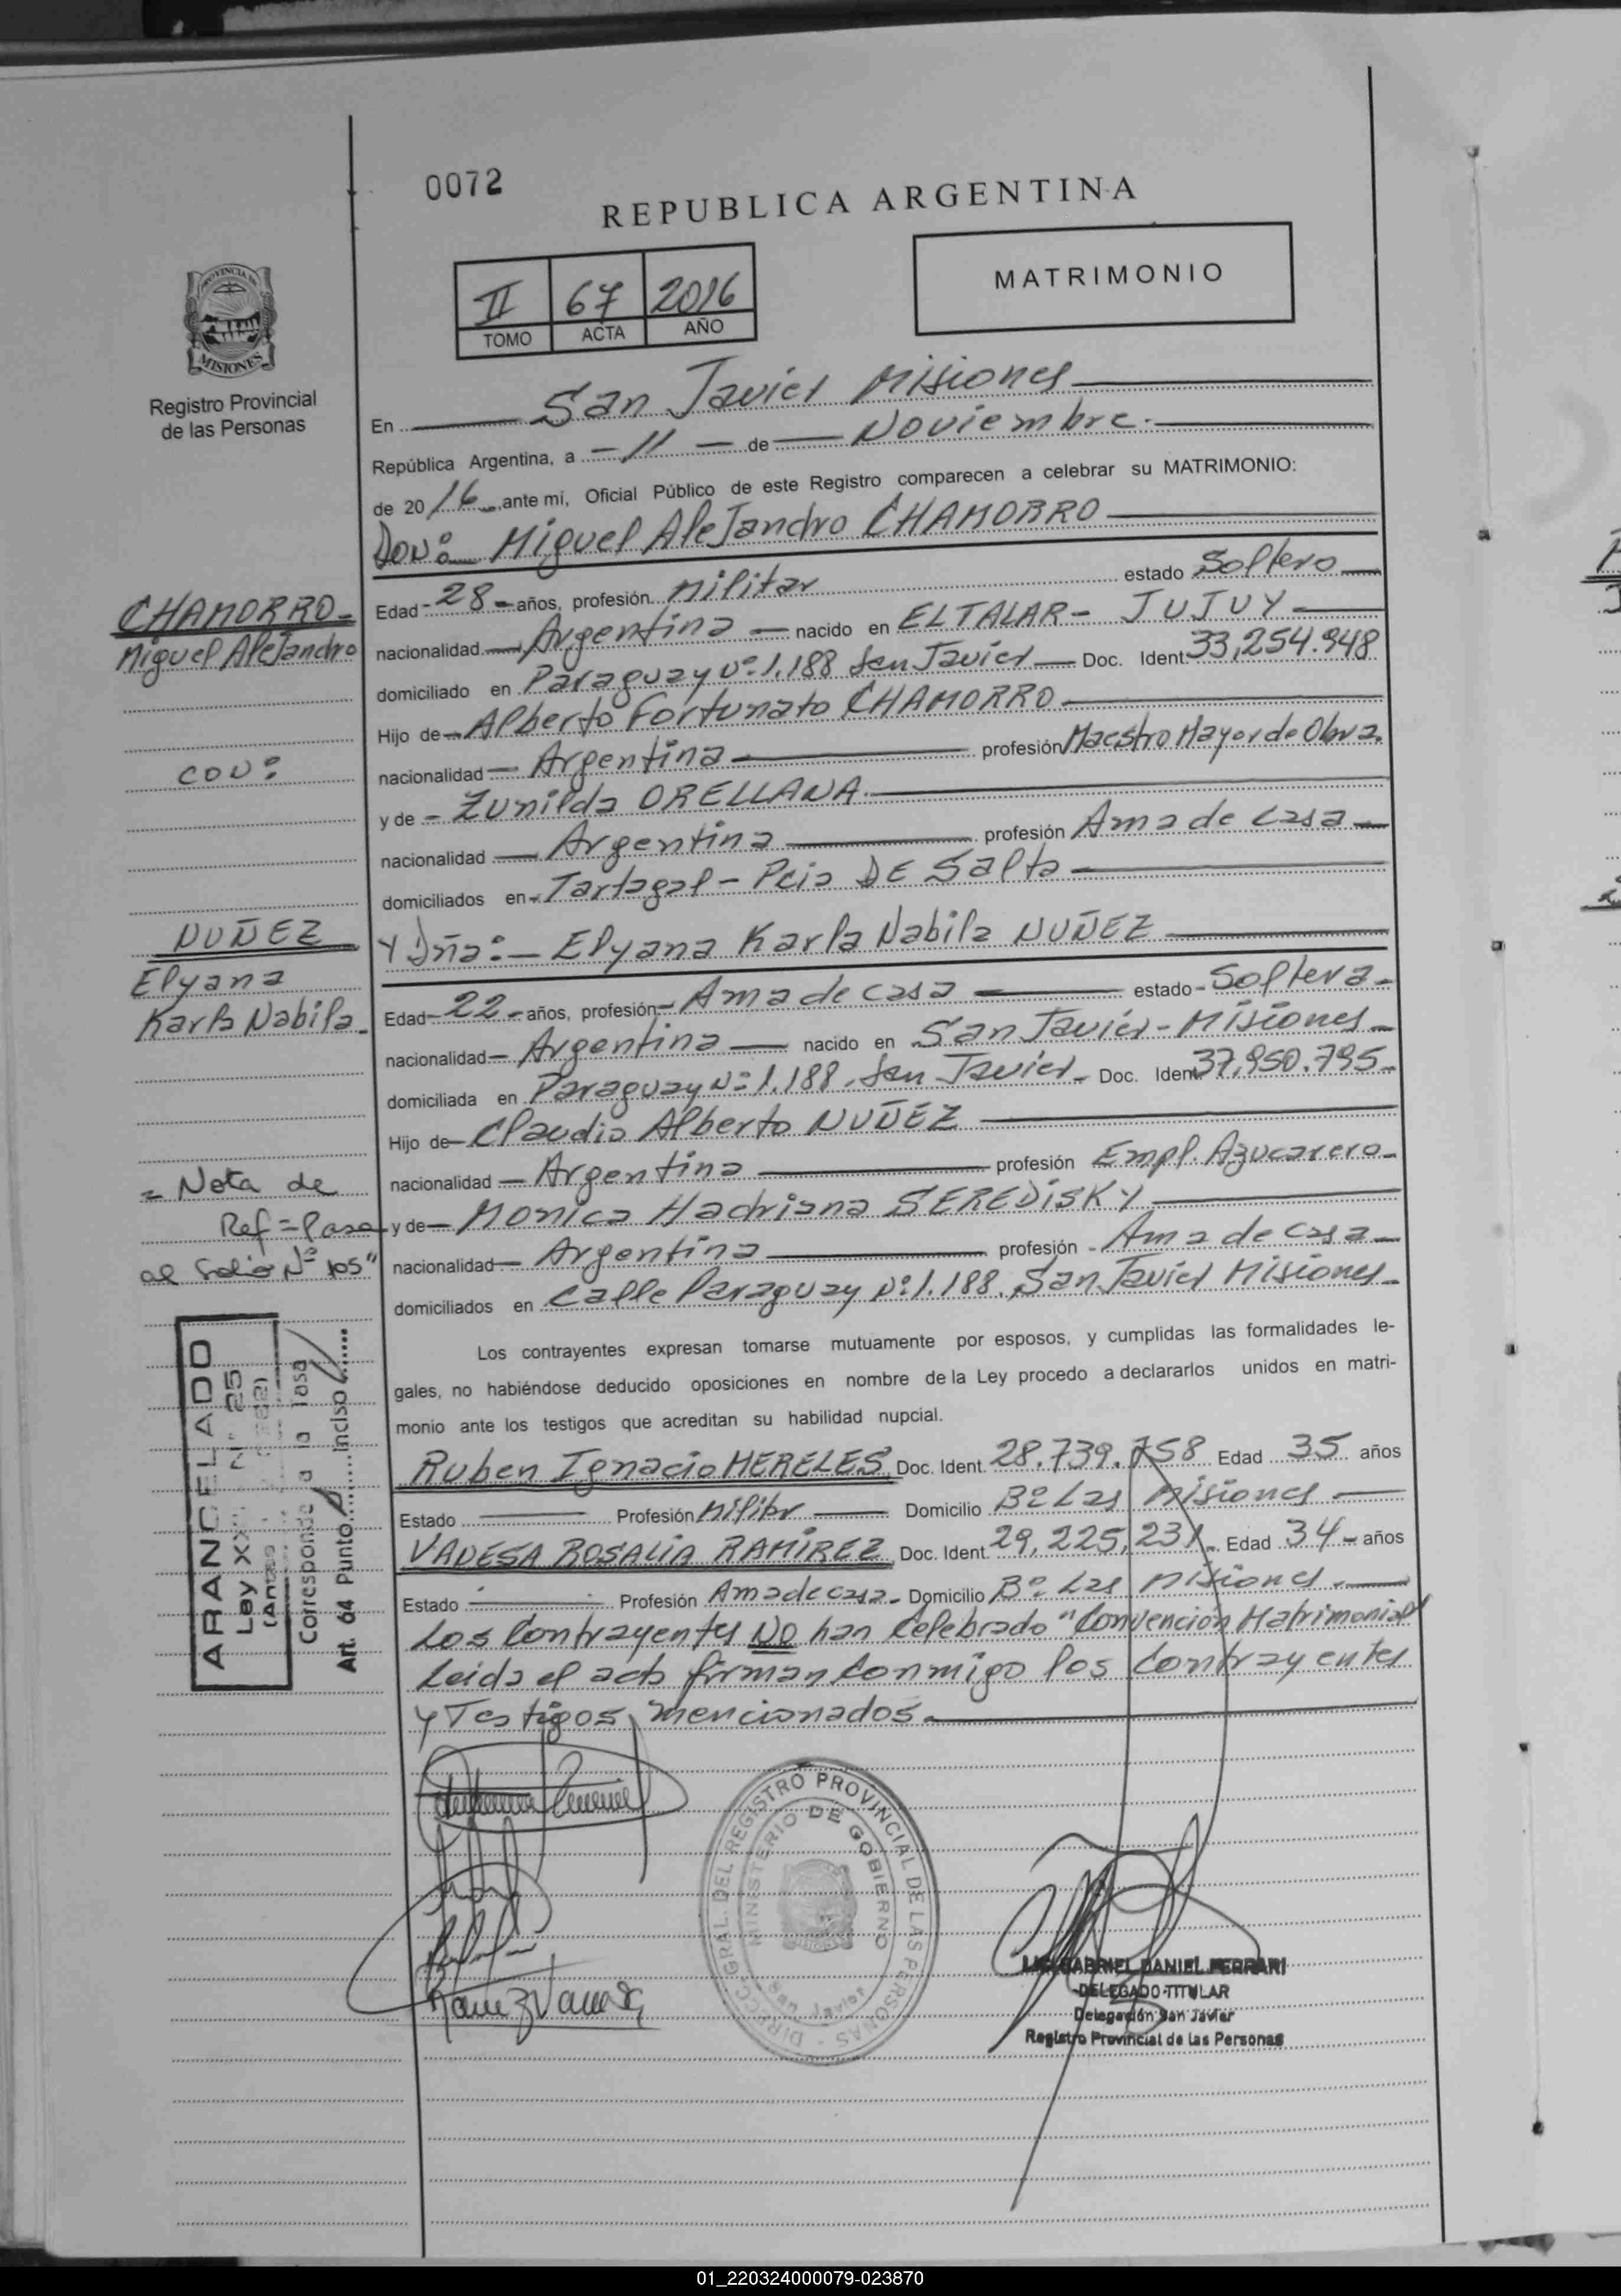 0072
REPUBLICA ARGENTINA
II 67 2016
TOMO ACTA AÑO
MATRIMONIO
PROVINCIA DE
MISIONES
Registro Provincial
de las Personas
En San Javier Misiones
República Argentina, a -11- de Noviembre.
de 2016 ante mí, Oficial Público de este Registro comparecen a celebrar su MATRIMONIO:
Don: Miguel Alejandro CHAMORRO
CHAMORRO-
Miguel Alejandro
con:
NUÑEZ
Elyana
Karla Nabila.
Edad-28-años, profesión Militar estado Soltero
nacionalidad Argentina nacido en EL TALAR- JUJUY-
domiciliado en Paraguay Nº 1.188 San Javier Doc. Ident. 33,254.948
Hijo de Alberto Fortunato CHAMORRO
nacionalidad Argentina profesión Maestro Mayor de Obra.
y de - Zunilda ORELLANA
nacionalidad Argentina profesión Ama de casa
domiciliados en Tartagal - Pcia DE Salta
Y Dña: Elyana Karla Nabila NUÑEZ
Edad-22-años, profesión Ama de casa estado-Soltera-
nacionalidad Argentina nacido en San Javier-Misiones
domiciliada en Paraguay Nº 1.188. San Javier- Doc. Ident 37,950.795-
Hijo de Claudio Alberto NUÑEZ
nacionalidad Argentina profesión Empl. Azucarero-
y de Monica Hadriana SEREDISKY
nacionalidad Argentina profesión - Ama de casa
domiciliados en calle Paraguay Nº 1.188. San Javier Misiones-
= Nota de
Ref = Pasa
al Folio Nº 105"
Los contrayentes expresan tomarse mutuamente por esposos, y cumplidas las formalidades le-
gales, no habiéndose deducido oposiciones en nombre de la Ley procedo a declararlos unidos en matri-
monio ante los testigos que acreditan su habilidad nupcial.
Ruben Ignacio MERELES Doc. Ident. 28.739.758 Edad 35 años
Estado Profesión Militar Domicilio Bº Las Misiones
VANESA ROSALIA RAMIREZ Doc. Ident. 29,225,231 Edad 34- años
Estado Profesión Ama de casa- Domicilio Bº Las Misiones
Los Contrayentes NO han Celebrado "Convención Matrimonial"
Leida el acta firman conmigo los Contrayentes
y Testigos mencionados.
ARANCELADO
Ley XX Nº 25
(Antes
Corresponde a la Tasa
Art. 64 Punto inciso
DIRECC. GRAL. DEL REGISTRO PROVINCIAL DE LAS PERSONAS
MINISTERIO DE GOBIERNO
San Javier
GABRIEL DANIEL FERRARI
DELEGADO TITULAR
Delegación San Javier
Registro Provincial de las Personas
01_220324000079-023870